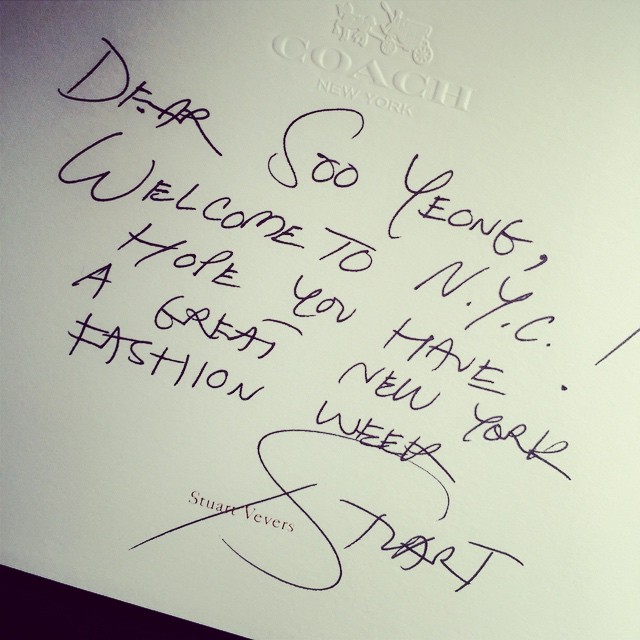 COACH
NEW YORK
DEAR SOO YEONG,
WELCOME TO N.Y.C. !
HOPE YOU HAVE
A GREAT NEW YORK
FASHION WEEK
STUART
Stuart Vevers